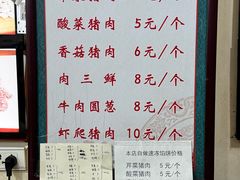 酸菜猪肉 5元/个
香菇猪肉 6元/个
肉三鲜 8元/个
牛肉圆葱 8元/个
虾爬猪肉 10元/个
本店自做速冻馅饼价格
芹菜猪肉 5元/个
酸菜猪肉 5元/个